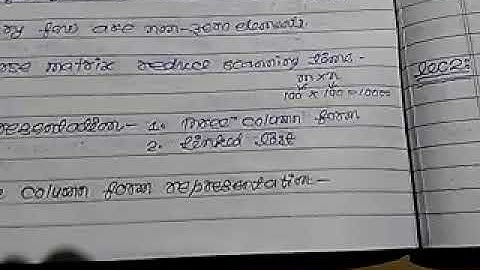 few are non-zero elements.
matrix reduce scanning time -
m x n
100 x 100 = 10000
1. Three column form
2. linked list
column form representation -